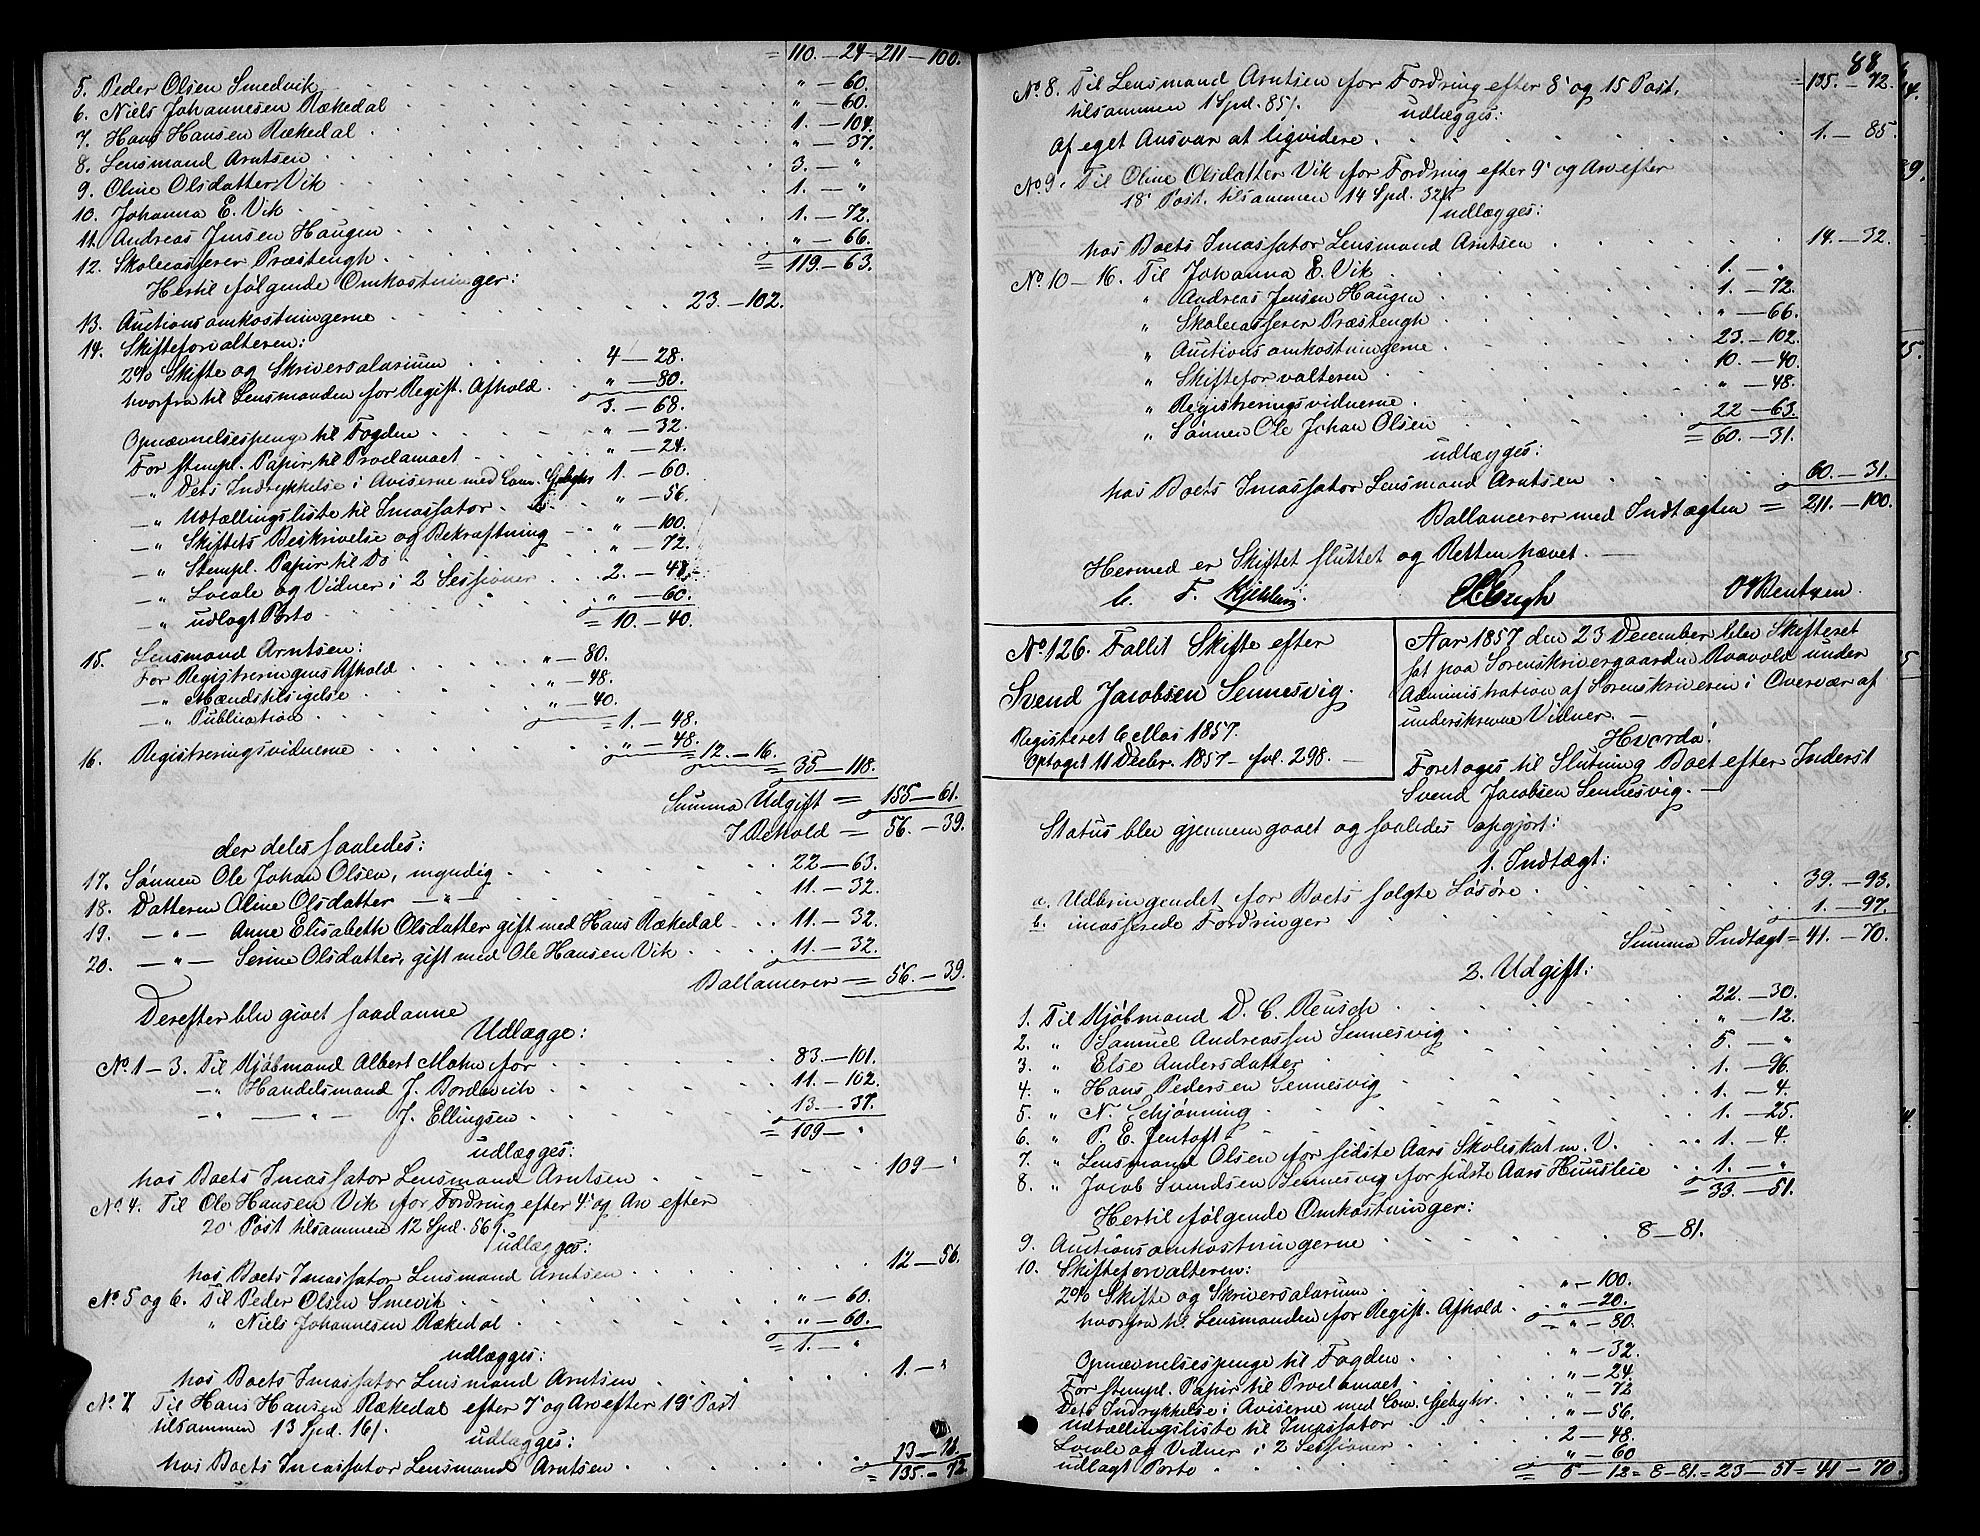 = 110. — 24 = 211 — 100.
5. Peder Olsen Smedvik " — 60.
6. Niels Johannesen Rækedal " — 60.
7. Hans Hansen Rækedal 1. — 104.
8. Lensmand Arntsen " — 37.
9. Oline Olsdatter Vik 3. — "
10. Johanna E. Vik 1. — "
11. Andreas Jensen Haugen 1. — 72.
12. Skolecasserer Præstengh " — 66.
= 119. — 63.
Hertil følgende Omkostninger:
13. Auctionsomkostningerne 23. — 102.
14. Skifteforvalteren:
2% Skifte og Skriversalarium 4 — 28.
hvorfra til Lensmanden for Regist. Afhold " — 80.
3. — 68.
Opnævnelsespenge til Fogden " — 32.
For stempl. Papir til Proclamaet " — 24.
— " Dets Indrykkelse i Aviserne med Com. Gebyhr 1. — 60.
— " Udtællingsliste til Incassator " — 56.
— " Skiftets Beskrivelse og Bekræftning " — 100.
— " Stempl. Papir til Do " — 72.
— " Locale og Vidner i 2 Sessioner 2. — 48.
— " udlagt Porto " — 60.
= 10. — 40.
15. Lensmand Arntsen:
For Registreringens Afhold " — 80.
— " Mændstilsigelse " — 48.
— " Publication " — 40.
= 1. — 48.
16. Registreringsvidnerne " — 48.
= 12. — 16.
= 35 — 118.
Summa Udgift = 155 — 61.
I Behold = 56. — 39.
der deles saaledes:
17. Sønnen Ole Johan Olsen, myndig 22 — 63.
18. Datteren Oline Olsdatter — " — 11. — 32.
19. — " — Anne Elisabeth Olsdatter gift med Hans Rækedal 11 — 32.
20. — " — Serine Olsdatter, gift med Ole Hansen Vik 11 — 32.
Ballancerer = 56. — 39.
Derefter blev givet saadanne
Udlægge:
No. 1 — 3. Til Kjøbmand Albert Mohn for 83 — 101.
— " Handelsmand J. Bordevik 11. — 102.
— " — " — J. Ellingsen 13. — 37.
= 109 — "
udlægges:
hos Boets Incassator Lensmand Arntsen 109 — "
No. 4. Til Ole Hansen Vik for Fordring efter 4' og Arv efter
20' Post tilsammen 12 Spd. 56 ß.
udlægges:
hos Boets Incassator Lensmand Arntsen 12 — 56.
No. 5 og 6. Til Peder Olsen Smevik " — 60.
" Niels Johannesen Rækedal " — 60.
= 1. — "
udlægges:
hos Boets Incassator Lensmand Arntsen 1. — "
No. 7. Til Hans Hansen Rækedal efter 7' og Arv efter 19' Post
tilsammen 13 Spd. 16 ß.
udlægges:
hos Boets Incassator Lensmand Arntsen 13 — 16.
= 135. — 72.
88.
= 135. — 72.
No. 8. Til Lensmand Arntsen for Fordring efter 8' og 15 Post,
tilsammen 1 Spd. 85 ß.
udlægges:
Af eget Ansvar at liqvidere 1. — 85.
No. 9. Til Oline Olsdatter Vik for Fordring efter 9' og Arv efter
18' Post, tilsammen 14 Spd. 32 ß
udlægges:
hos Boets Incassator Lensmand Arntsen 14. — 32.
No. 10 — 16. Til Johanna E. Vik 1. — "
" Andreas Jensen Haugen 1. — 72.
" Skolecasserer Præstengh " — 66.
" Auctionsomkostningerne 23. — 102.
" Skifteforvalteren 10. — 40.
" Registreringsvidnerne " — 48.
" Sønnen Ole Johan Olsen 22 — 63.
= 60. — 31.
udlægges:
hos Boets Incassator Lensmand Arntsen 60. — 31.
Ballancerer med Indtægten = 211. — 100.
Hermed er Skiftet sluttet og Retten hævet. —
O Bentzen.
No. 126. Fallit Skifte efter
Svend Jacobsen Sennesvig.
Registeret 6 Mai 1857.
Optaget 11 Decbr. 1857 — fol. 298. —
Aar 1857 den 23 December blev Skifteret
sat paa Sorenskrivergaarden Raavold under
Administration af Sorenskriveren i Overvær af
underskrevne Vidner. —
Hvorda:
Foretoges til Slutning Boet efter Inderst
Svend Jacobsen Sennesvig. —
Status blev gjennemgaaet og saaledes opgjort:
1. Indtægt:
a. Udbringendet for Boets solgte Løsøre 39. — 93.
b. incasserede Fordringer 1. — 97.
Summa Indtægt = 41. — 70.
2. Udgift:
1. Til Kjøbmand D. C. Reusch 22. — 30.
2. " Samuel Andreassen Sennesvig " — 12.
3. " Else Andersdatter 5. — "
4. " Hans Pedersen Sennesvig 1. — 96.
5. " N. Schjønning 1. — 4.
6. " P. E. Jentoft 1. — 25.
7. " Lensmand Olsen for sidste Aars Skoleskat m. V. 1. — 4.
8. " Jacob Svendsen Sennesvig for sidste Aars Huusleie 1. — "
= 33. — 51.
Hertil følgende Omkostninger:
9. Auctionsomkostningerne 8 — 81.
10. Skifteforvalteren:
2% Skifte og Skriversalarium " — 100.
hvorfra til Lensmanden for Regist. Afhold " — 20.
= " — 80.
Opnævnelsespenge til Fogden " — 32.
For stempl. Papir til Proclamaet " — 24.
Dets Indrykkelse i Aviserne med Com. Gebyhr " — 72
udtællingsliste til Incassator " — 56.
Locale og Vidner i 2 Sessioner 2 — 48.
udlagt Porto " — 60
= 5 — 12 = 8 — 81. = 23 — 51 = 41 — 70.